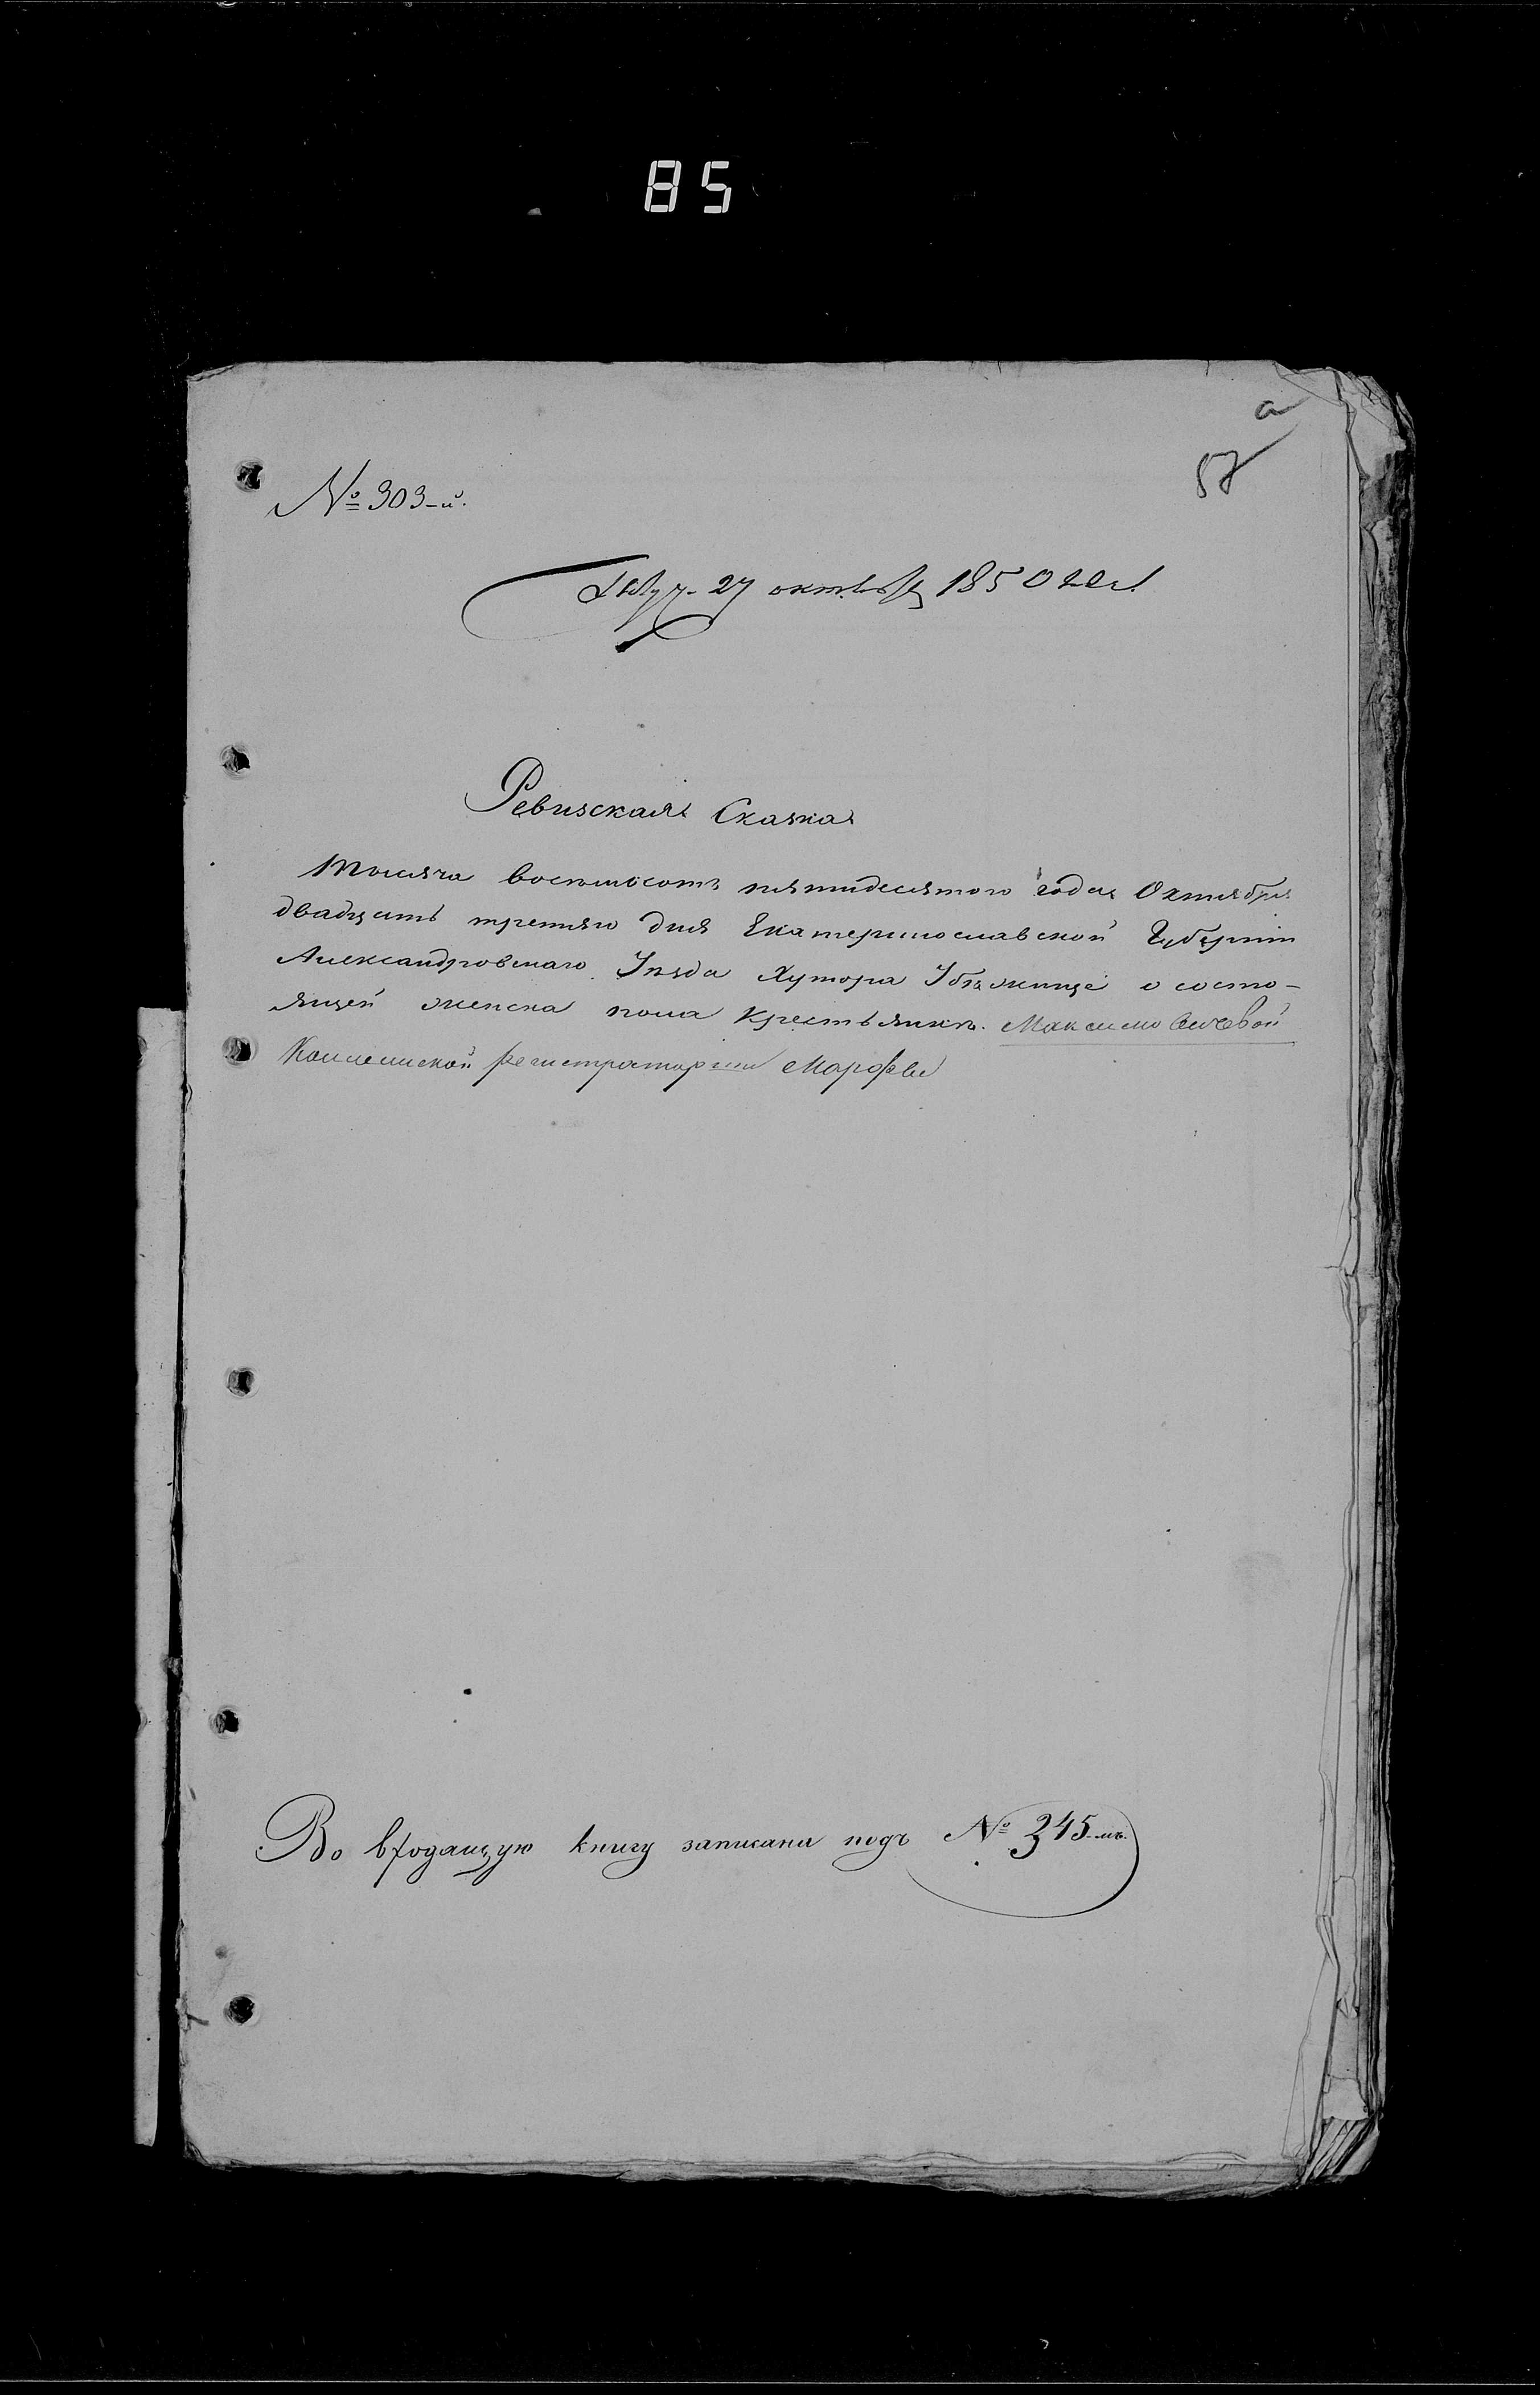 85
а
87
№ 303-й.
27 октября 1850 года
Ревизская Сказка
Тысяча восемьсотъ пятидесятого года Октября
двадцать третяго дня Екатеринославской Губерніи
Александровскаго Уѣзда Хутора Убѣжище о состо-
ящей женска пола крестьянкѣ. Максимовичевой
Коллежской регистраторши Марфы
Во входящую книгу записана подъ № 345-мъ.